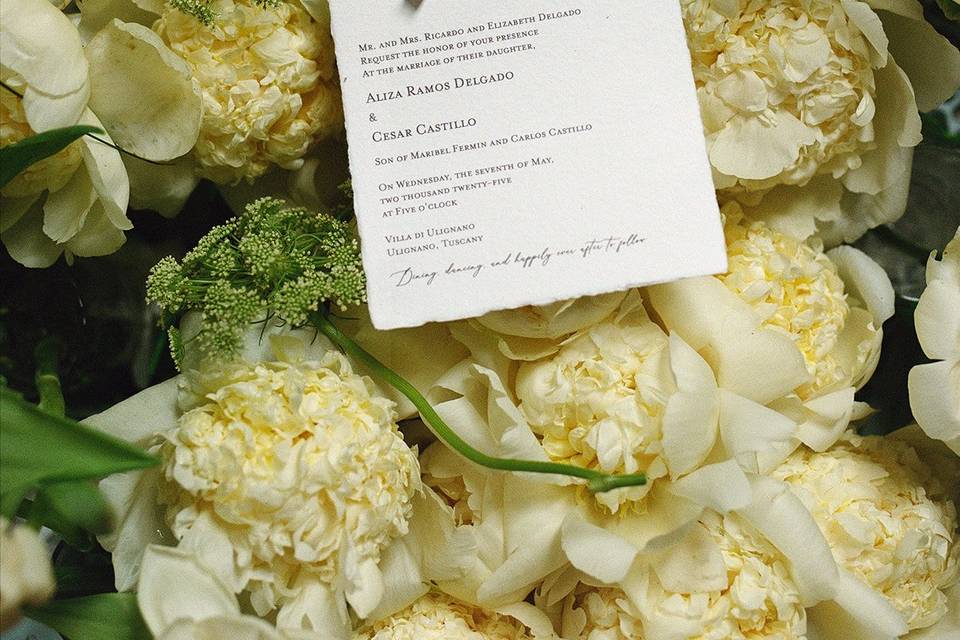 Mr. and Mrs. Ricardo and Elizabeth Delgado
Request the honor of your presence
At the marriage of their daughter,
Aliza Ramos Delgado
&
Cesar Castillo
Son of Maribel Fermin and Carlos Castillo
On Wednesday, the seventh of May,
two thousand twenty-five
at Five o'clock
Villa di Ulignano
Ulignano, Tuscany
Dining, dancing, and happily ever after to follow